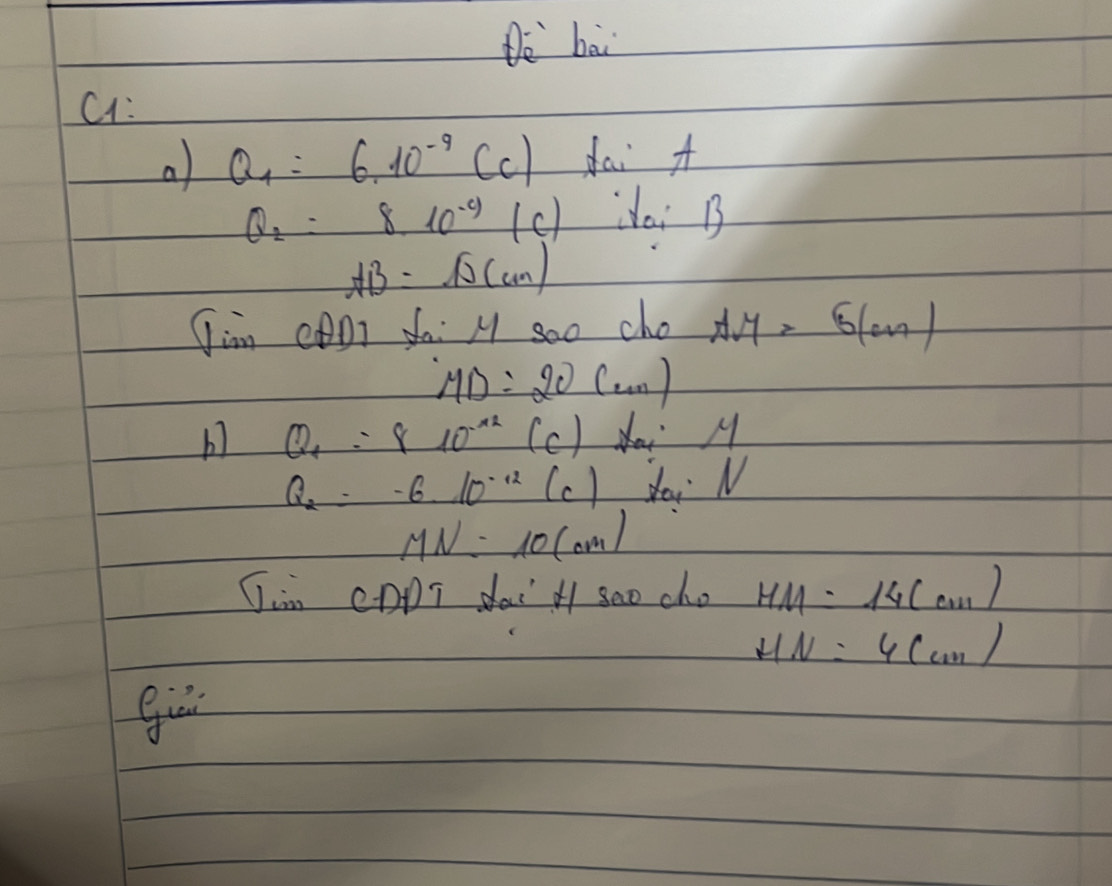 Đề bài
C1:
a) Q₁ = 6.10⁻⁹ (C) tại A
Q₂ = 8.10⁻⁹ (C) tại B
AB = 15(cm)
Tìm CĐĐT tại M sao cho AM = 5(cm)
MB = 20 (cm)
b) Q₁ = 8 10⁻¹² (C) tại M
Q₂ = -6.10⁻¹² (C) tại N
MN = 10(cm)
Tìm CĐĐT tại H sao cho HM = 14(cm)
HN = 4(cm)
Giải